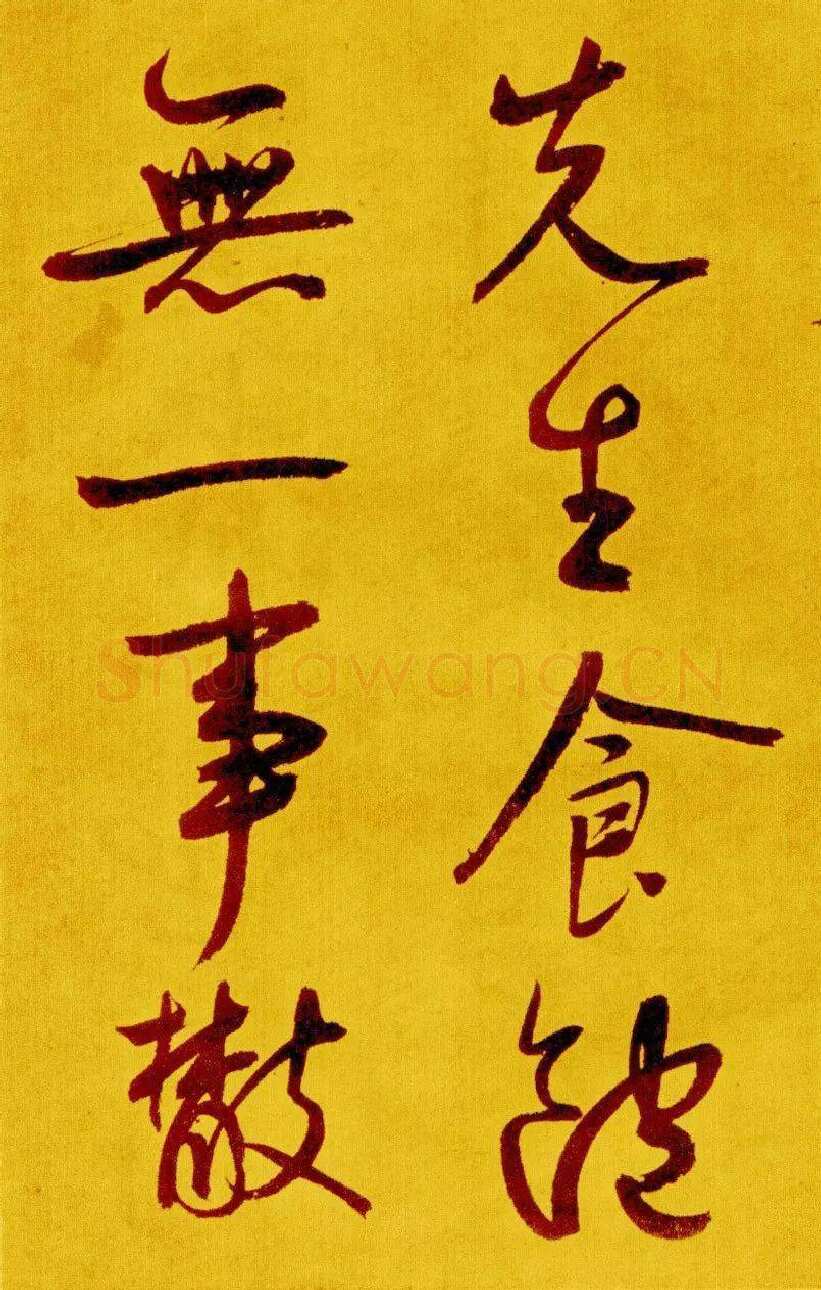 先生食飽
無一事散
Shufawang.CN